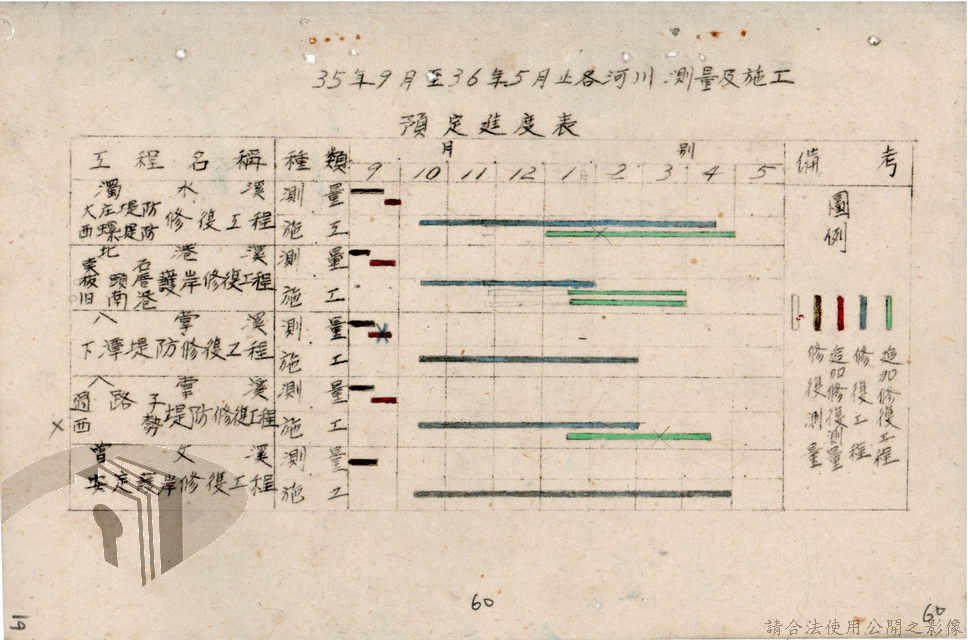 35年9月至36年5月止各河川測量及施工
預定進度表
工程名稱 種類 月別 備考
9 10 11 12 1 2 3 4 5
濁水溪 測量
大庄堤防
西螺堤防 修復工程 施工
北港溪 測量
石
板頭厝護岸修復工程
旧南港 施工
八掌溪 測量
下潭堤防修復工程 施工
八掌溪 測量
過路子
西勢堤防修復工程 施工
×
曽文溪 測量
安定護岸修復工程 施工
圖例
修復測量
追加修復測量
修復工程
追加修復工程
19
60
60
請合法使用公開之影像